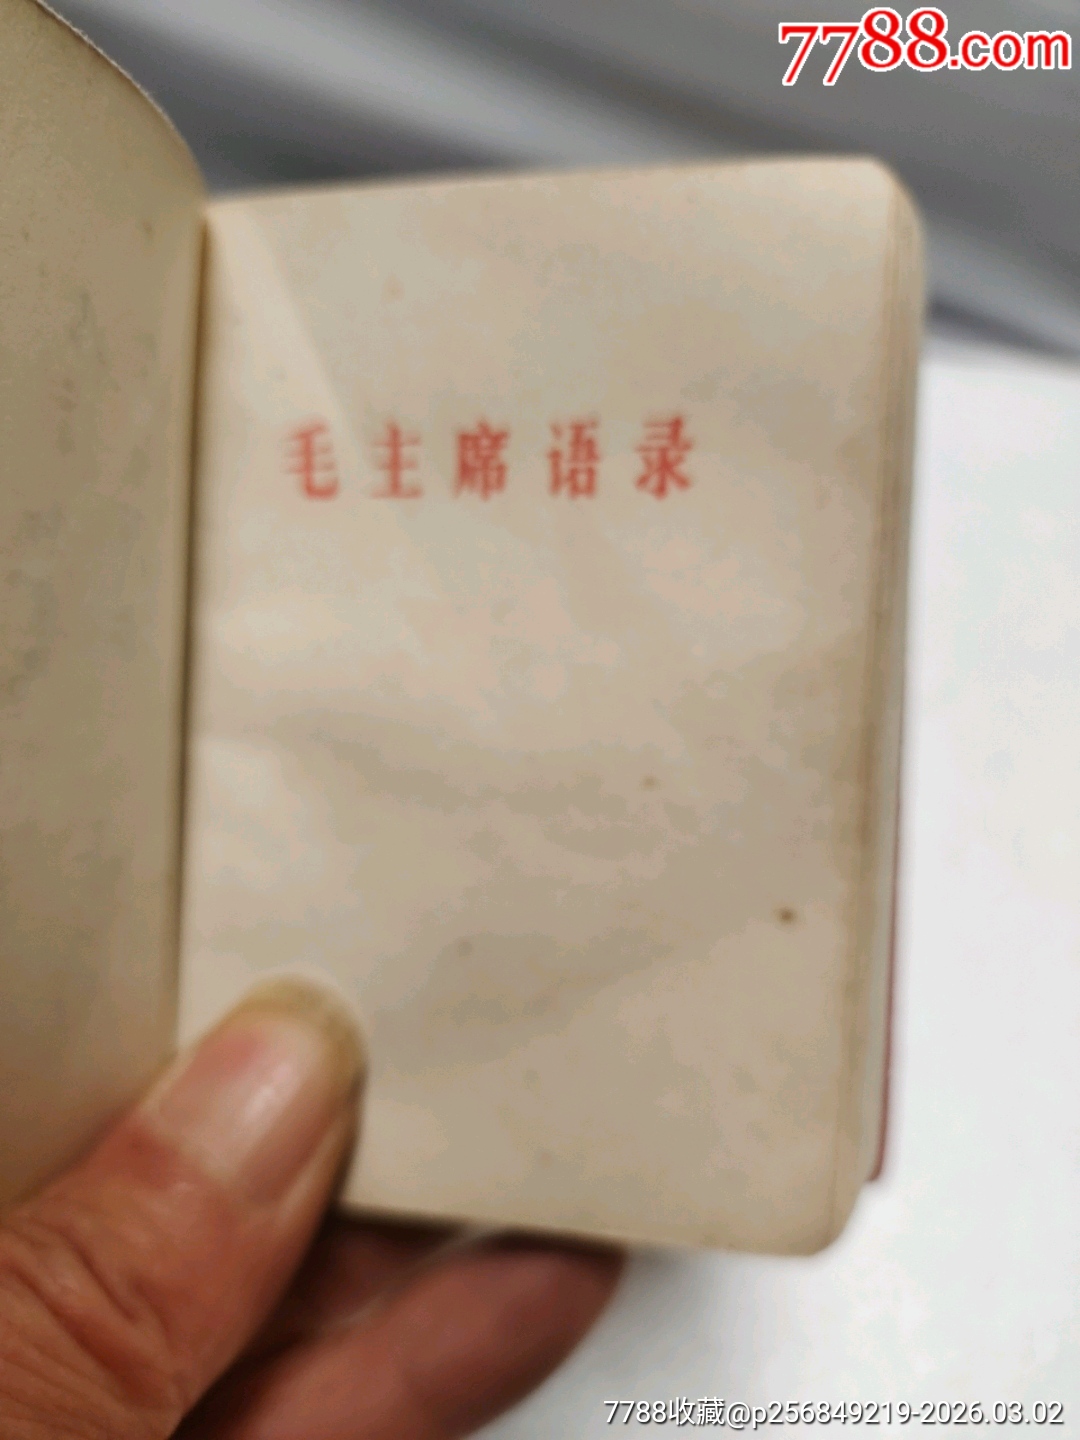 7788.com
毛主席语录
7788收藏@p256849219-2026.03.02